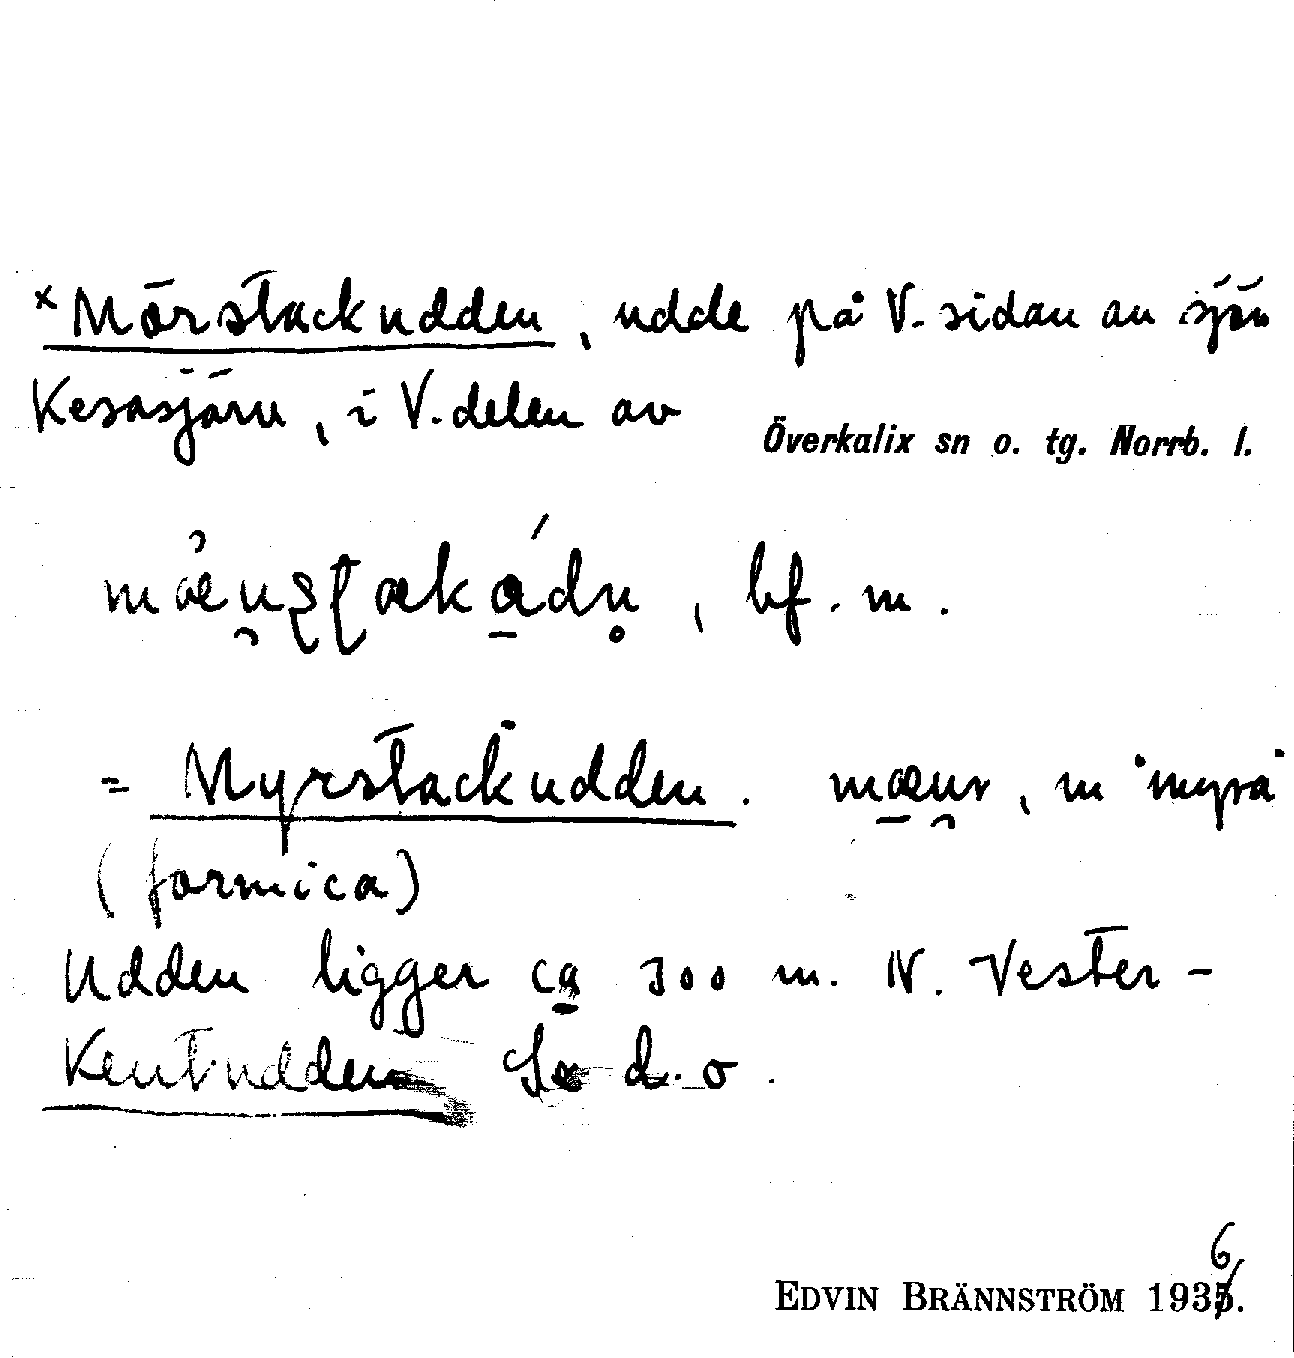 × Mörstackudden, udde på V. sidan av sjön
Kesasjärv, i V. delen av
Överkalix sn o. tg. Norrb. l.
, bf. m.
= Myrstackudden. mæu̯r, m "myra"
(formica)
Udden ligger ca 300 m. N. Vester-
Kentudden Se d. o.
6
EDVIN BRÄNNSTRÖM 1935.